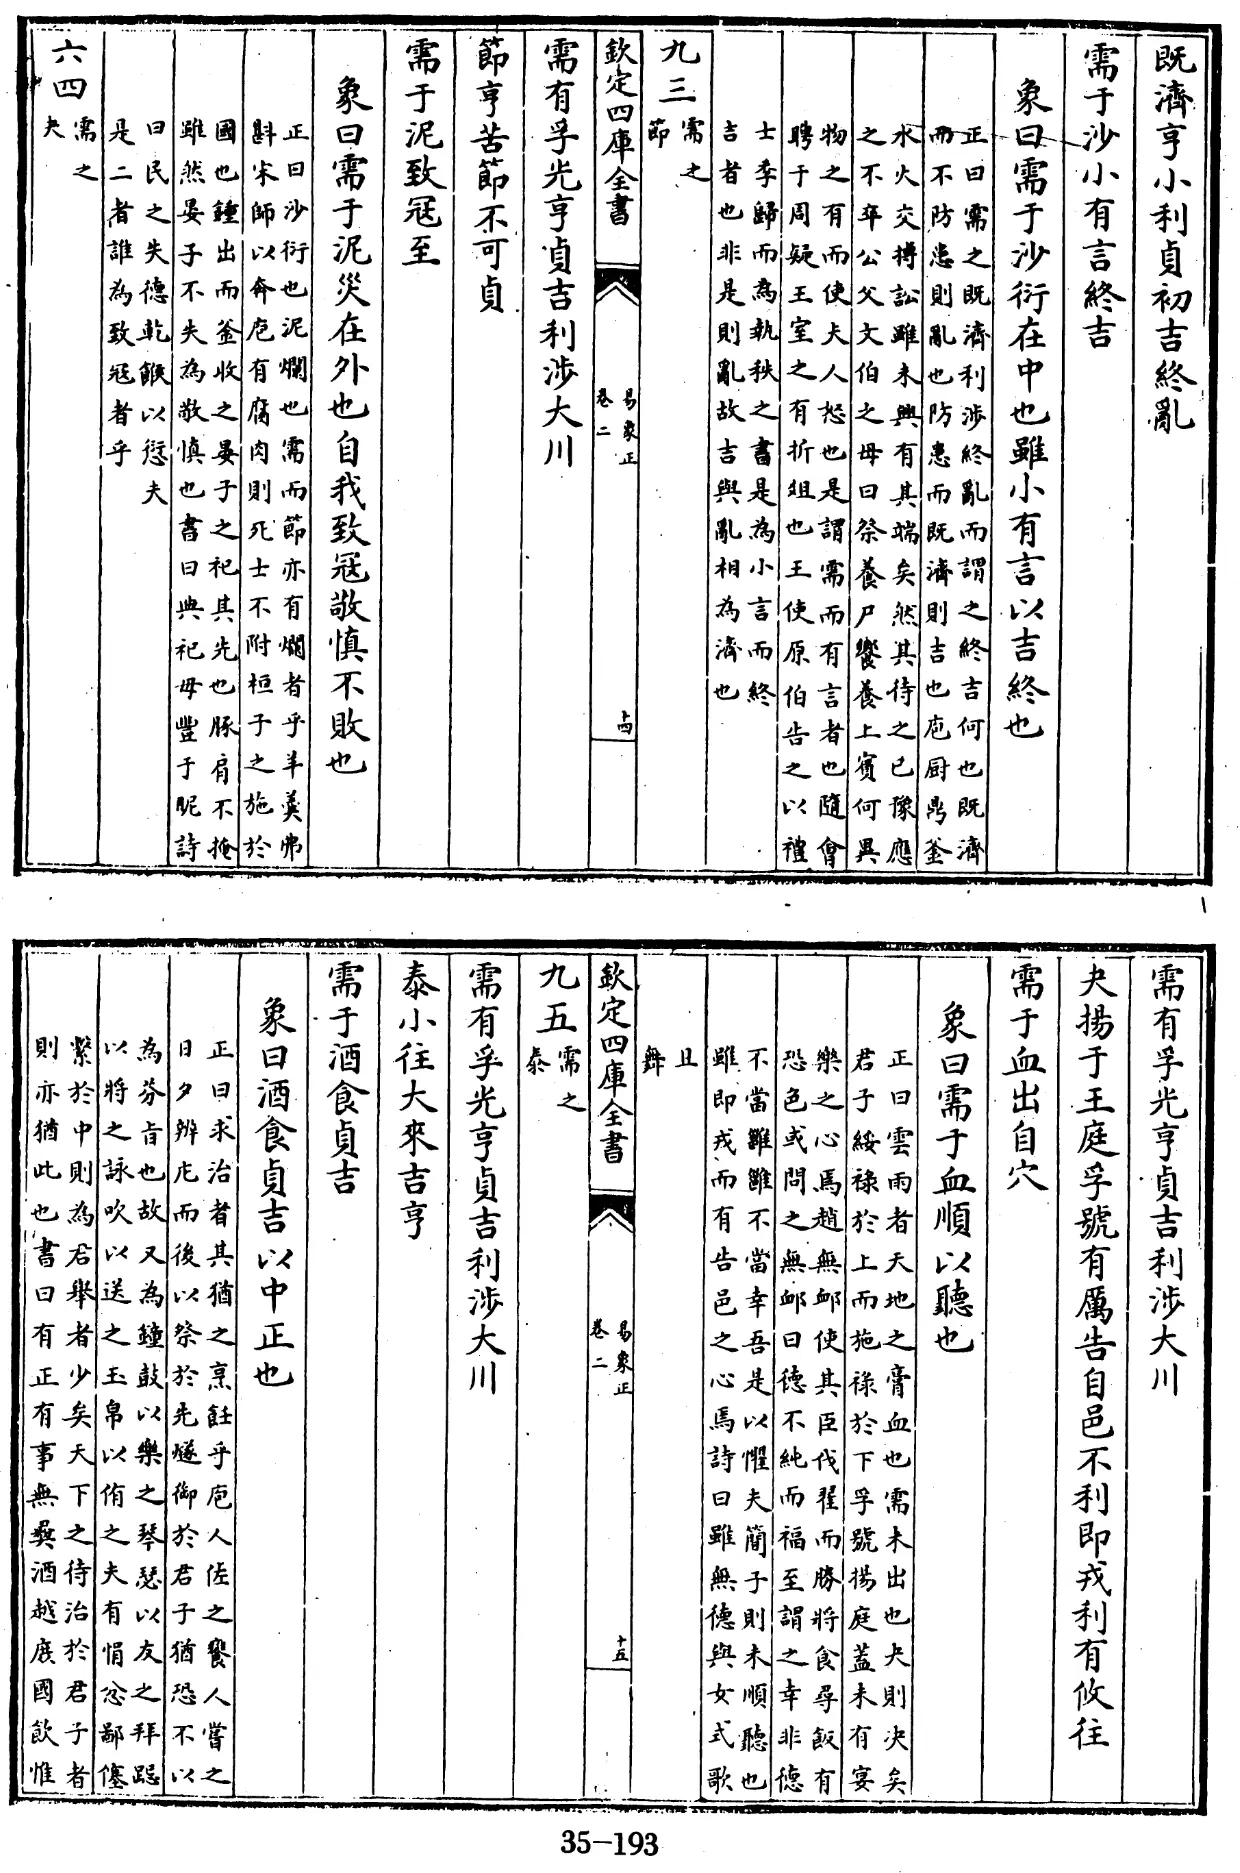 既濟亨小利貞初吉終亂
需于沙小有言終吉
象曰需于沙衍在中也雖小有言以吉終也
正曰需之既濟利涉終亂而謂之終吉何也既濟
而不防患則亂也防患而既濟則吉也庖厨鼎釜
水火交摶訟雖未興有其端矣然其待之已豫應
之不卒公父文伯之母曰祭養尸饗養上賓何異
物之有而使夫人怒也是謂需而有言者也隨會
聘于周疑王室之有折俎也王使原伯告之以禮
士季歸而為執秩之書是為小言而終
吉者也非是則亂故吉與亂相為濟也
九三
需之
節
欽定四庫全書
易象正
卷二
十四
需有孚光亨貞吉利涉大川
節亨苦節不可貞
需于泥致冦至
象曰需于泥災在外也自我致冦敬慎不敗也
正曰沙衍也泥爛也需而節亦有爛者乎羊羹弗
斟宋師以奔庖有腐肉則死士不附桓子之施於
國也鍾出而釜收之晏子之祀其先也豚肩不掩
雖然晏子不失為敬慎也書曰典祀毋豐于昵詩
曰民之失德乾餱以愆夫
是二者誰為致冦者乎
六四
需之
夬
需有孚光亨貞吉利涉大川
夬揚于王庭孚號有厲告自邑不利即戎利有攸往
需于血出自穴
象曰需于血順以聽也
正曰雲雨者天地之膏血也需未出也夬則决矣
君子綏祿於上而施祿於下孚號揚庭蓋未有宴
樂之心焉趙無䘏使其臣伐翟而勝將食尋飯有
恐色或問之無䘏曰德不純而福至謂之幸非德
不當雖雖不當幸吾是以懼夫簡子則未順聽也
雖即戎而有告邑之心焉詩曰雖無德與女式歌
且
舞
欽定四庫全書
易象正
卷二
十五
九五
需之
泰
需有孚光亨貞吉利涉大川
泰小往大來吉亨
需于酒食貞吉
象曰酒食貞吉以中正也
正曰求治者其猶之烹飪乎庖人佐之饔人嘗之
日夕辨庀而後以祭於先燧御於君子猶恐不以
為芬旨也故又為鐘鼓以樂之琴瑟以友之拜跽
以將之詠吹以送之玉帛以侑之夫有悁忿鄙僿
繫於中則為君舉者少矣天下之待治於君子者
則亦猶此也書曰有正有事無彝酒越庶國飲惟
35-193